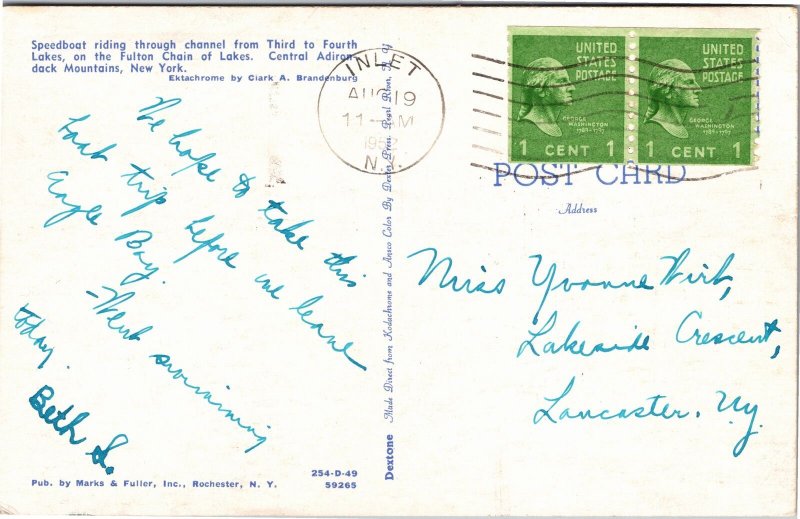 Speedboat riding through channel from Third to Fourth
Lakes, on the Fulton Chain of Lakes. Central Adiron-
dack Mountains, New York.
Ektachrome by Clark A. Brandenburg
INLET
AUG 19
11-AM
N.Y.
UNITED
STATES
POSTAGE
GEORGE
WASHINGTON
1789-1797
1 CENT 1
UNITED
STATES
POSTAGE
GEORGE
WASHINGTON
1789-1797
1 CENT 1
POST CARD
Address
We hope to take this
boat trip before we leave
Eagle Bay.
Went swimming
today.
Beth S.
Dextone Made Direct from Kodachrome and Ansco Color By Dexter Press, Pearl River, N. Y.
Miss Yvonne Wirt,
Lakeside Crescent,
Lancaster. Ny.
254-D-49
Pub. by Marks & Fuller, Inc., Rochester, N. Y.
59265